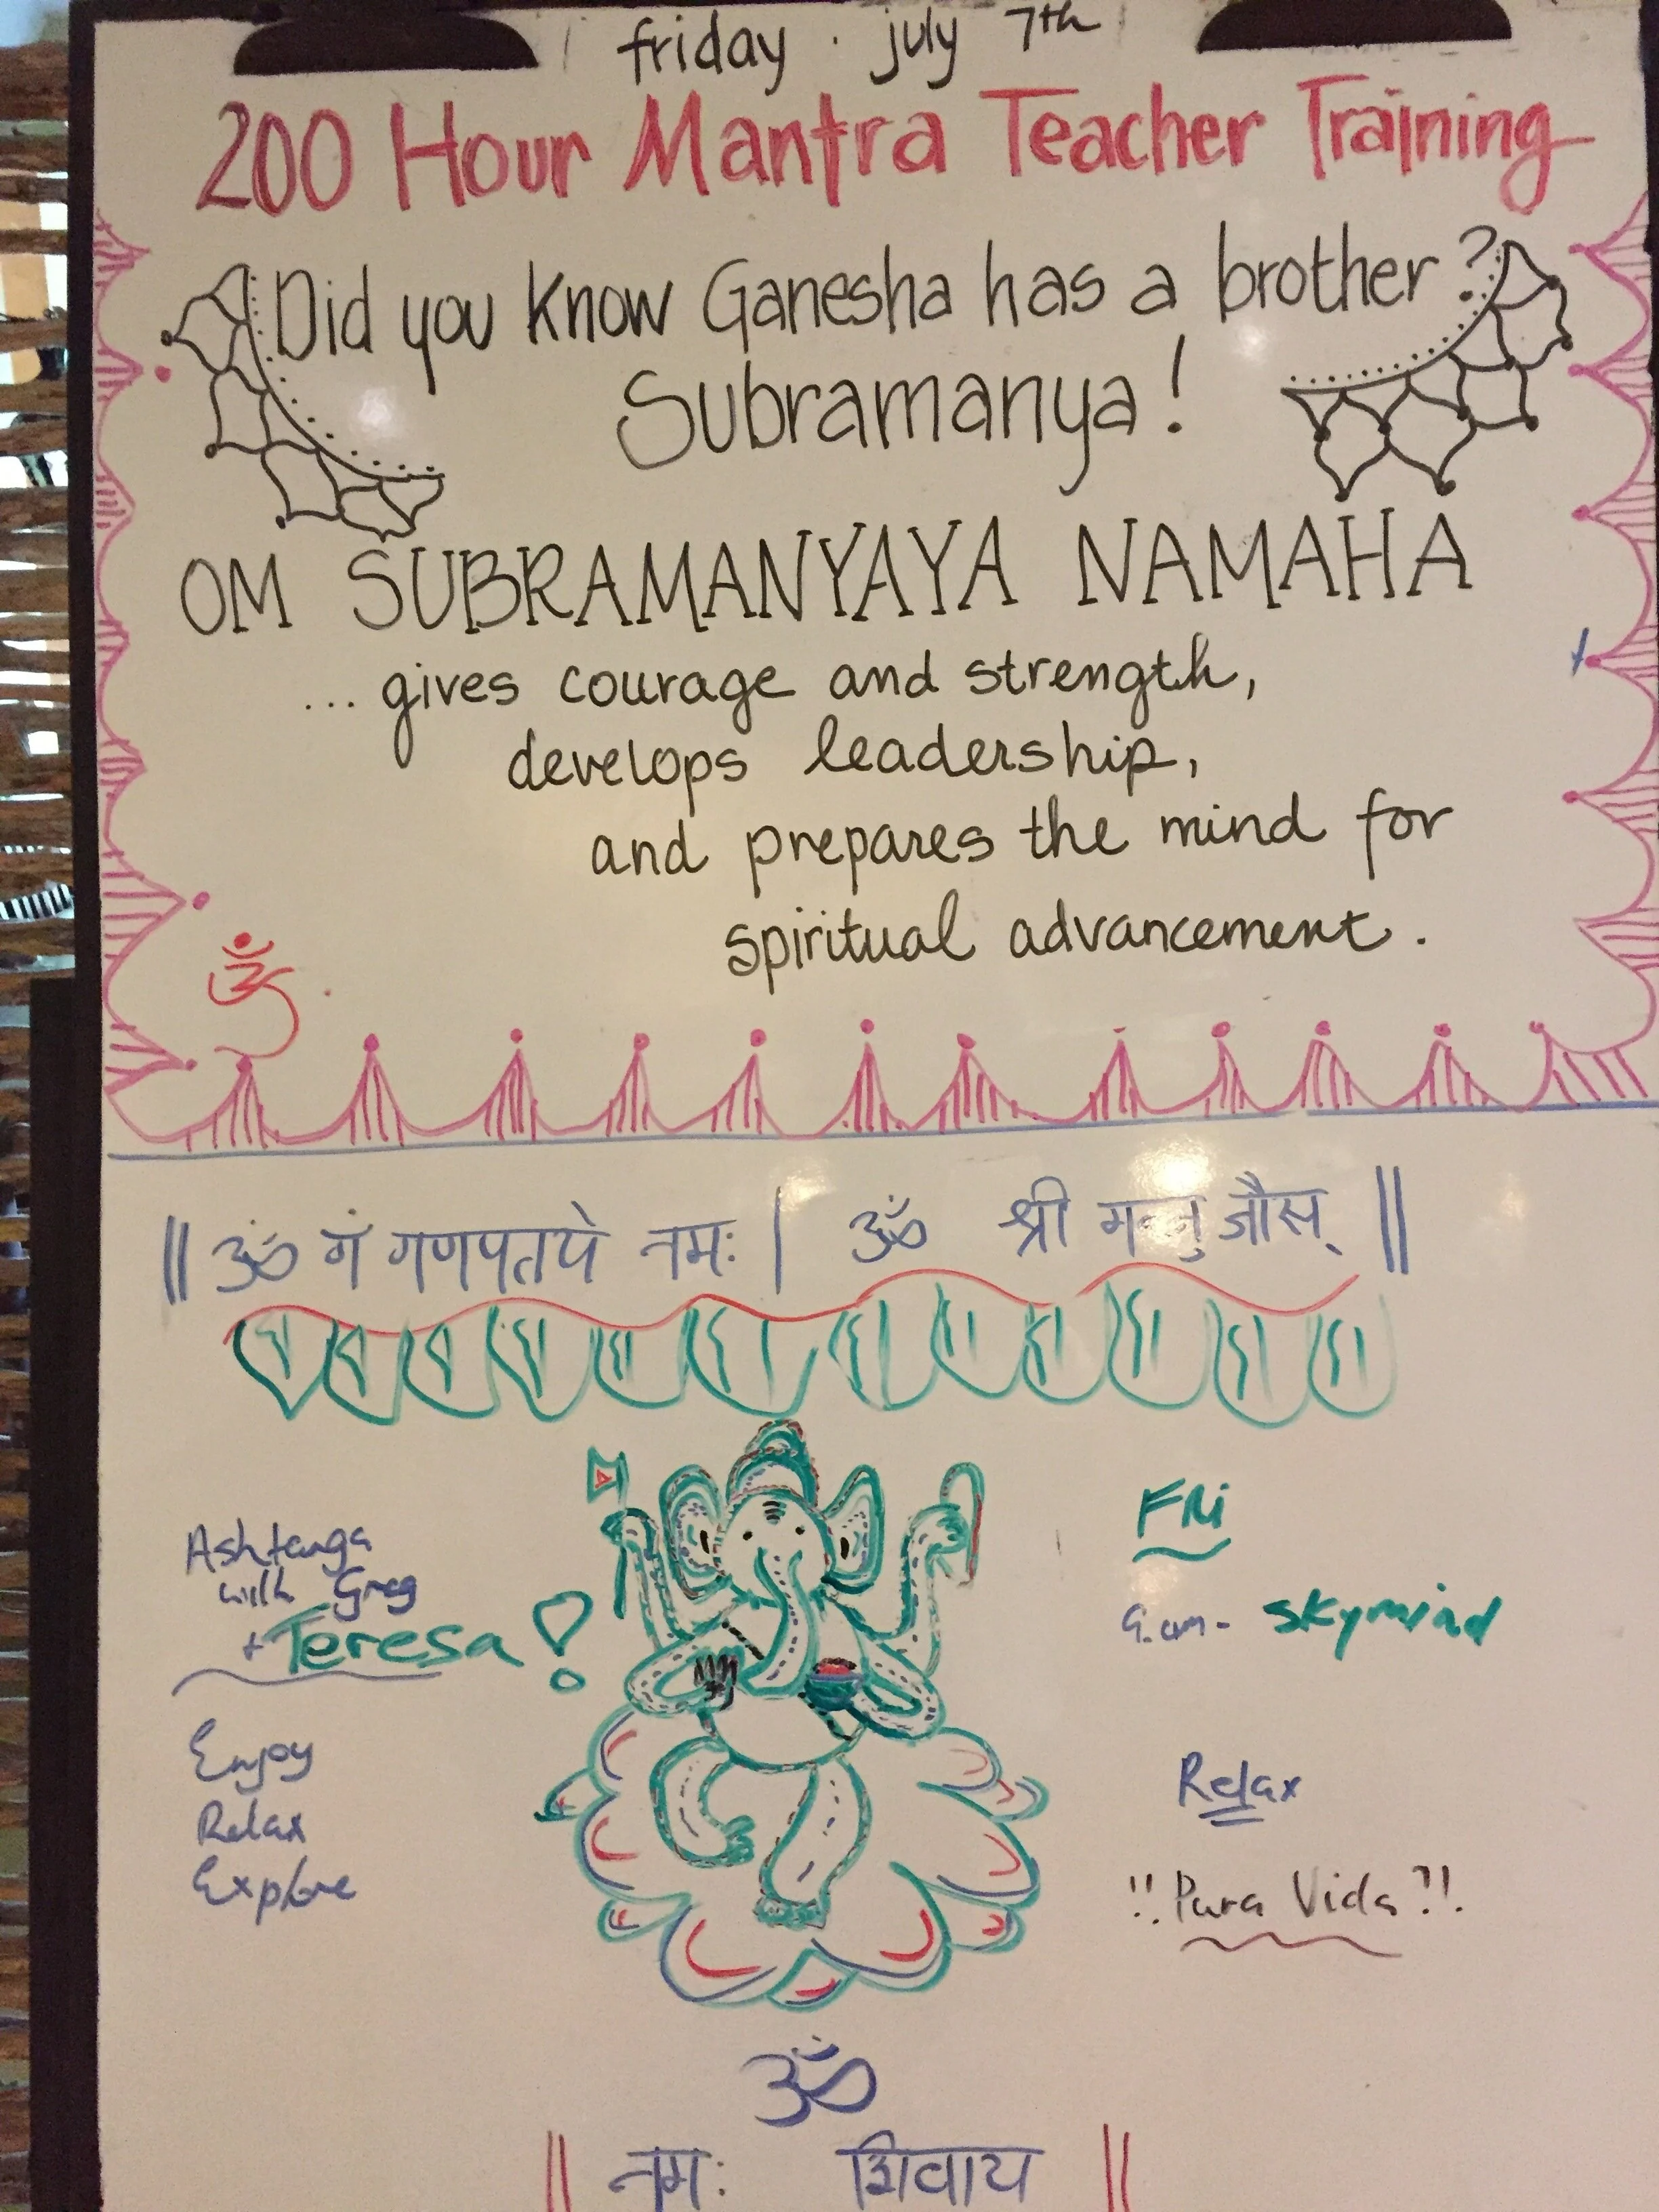 friday · july 7th
200 Hour Mantra Teacher Training
Did you know Ganesha has a brother?
Subramanya!
OM SUBRAMANYAYA NAMAHA
... gives courage and strength,
develops leadership,
and prepares the mind for
spiritual advancement.
ॐ
|| ॐ गं गणपतये नमः | ॐ श्री ||
Ashtanga
with Greg
+ Teresa!
Enjoy
Relax
Explore
FRi
skymind
Relax
!! Pura Vida ?!.
ॐ
|| नमः शिवाय ||